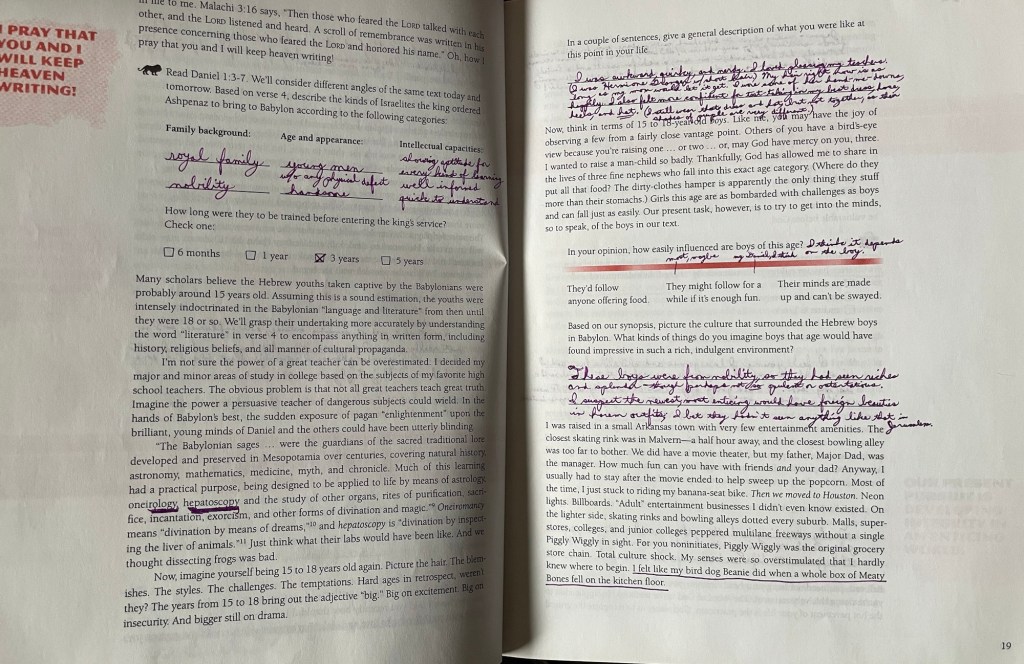 in me to me. Malachi 3:16 says, "Then those who feared the LORD talked with each
other, and the LORD listened and heard. A scroll of remembrance was written in his
presence concerning those who feared the LORD and honored his name." Oh, how I
pray that you and I will keep heaven writing!
I PRAY THAT
YOU AND I
WILL KEEP
HEAVEN
WRITING!
Read Daniel 1:3-7. We'll consider different angles of the same text today and
tomorrow. Based on verse 4, describe the kinds of Israelites the king ordered
Ashpenaz to bring to Babylon according to the following categories:
Family background: Age and appearance: Intellectual capacities:
royal family
nobility
young men
w/o any physical defect
handsome
showing aptitude for
every kind of learning
well informed
quick to understand
How long were they to be trained before entering the king's service?
Check one:
6 months 1 year 3 years 5 years
Many scholars believe the Hebrew youths taken captive by the Babylonians were
probably around 15 years old. Assuming this is a sound estimation, the youths were
intensely indoctrinated in the Babylonian "language and literature" from then until
they were 18 or so. We'll grasp their undertaking more accurately by understanding
the word "literature" in verse 4 to encompass anything in written form, including
history, religious beliefs, and all manner of cultural propaganda.
I'm not sure the power of a great teacher can be overestimated. I decided my
major and minor areas of study in college based on the subjects of my favorite high
school teachers. The obvious problem is that not all great teachers teach great truth.
Imagine the power a persuasive teacher of dangerous subjects could wield. In the
hands of Babylon's best, the sudden exposure of pagan "enlightenment" upon the
brilliant, young minds of Daniel and the others could have been utterly blinding.
"The Babylonian sages … were the guardians of the sacred traditional lore
developed and preserved in Mesopotamia over centuries, covering natural history,
astronomy, mathematics, medicine, myth, and chronicle. Much of this learning
had a practical purpose, being designed to be applied to life by means of astrology,
oneirology, hepatoscopy and the study of other organs, rites of purification, sacri-
fice, incantation, exorcism, and other forms of divination and magic."9 Oneiromancy
means "divination by means of dreams,"10 and hepatoscopy is "divination by inspect-
ing the liver of animals."11 Just think what their labs would have been like. And we
thought dissecting frogs was bad.
Now, imagine yourself being 15 to 18 years old again. Picture the hair. The blem-
ishes. The styles. The challenges. The temptations. Hard ages in retrospect, weren't
they? The years from 15 to 18 bring out the adjective "big." Big on excitement. Big on
insecurity. And bigger still on drama.
In a couple of sentences, give a general description of what you were like at
this point in your life.
I was awkward, quirky, and nerdy. I loved pleasing my teachers.
Now, think in terms of 15 to 18-year-old boys. Like me, you may have the joy of
observing a few from a fairly close vantage point. Others of you have a birds-eye
view because you're raising one … or two … or, may God have mercy on you, three.
I wanted to raise a man-child so badly. Thankfully, God has allowed me to share in
the lives of three fine nephews who fall into this exact age category. (Where do they
put all that food? The dirty-clothes hamper is apparently the only thing they stuff
more than their stomachs.) Girls this age are as bombarded with challenges as boys
and can fall just as easily. Our present task, however, is to try to get into the minds,
so to speak, of the boys in our text.
In your opinion, how easily influenced are boys of this age? I think it depends
on the boy.
They'd follow
anyone offering food.
They might follow for a
while if it's enough fun.
Their minds are made
up and can't be swayed.
Based on our synopsis, picture the culture that surrounded the Hebrew boys
in Babylon. What kinds of things do you imagine boys that age would have
found impressive in such a rich, indulgent environment?
These boys were from nobility so they had seen riches
and splendor though perhaps not so opulent or ostentatious.
I suggest the newest, most enticing would have foreign beauties
in foreign outfits. I bet they hadn't seen anything like that in
Jerusalem.
I was raised in a small Arkansas town with very few entertainment amenities. The
closest skating rink was in Malvern—a half hour away, and the closest bowling alley
was too far to bother. We did have a movie theater, but my father, Major Dad, was
the manager. How much fun can you have with friends and your dad? Anyway, I
usually had to stay after the movie ended to help sweep up the popcorn. Most of
the time, I just stuck to riding my banana-seat bike. Then we moved to Houston. Neon
lights. Billboards. "Adult" entertainment businesses I didn't even know existed. On
the lighter side, skating rinks and bowling alleys dotted every suburb. Malls, super-
stores, colleges, and junior colleges peppered multilane freeways without a single
Piggly Wiggly in sight. For you noninitiates, Piggly Wiggly was the original grocery
store chain. Total culture shock. My senses were so overstimulated that I hardly
knew where to begin. I felt like my bird dog Beanie did when a whole box of Meaty
Bones fell on the kitchen floor.
19